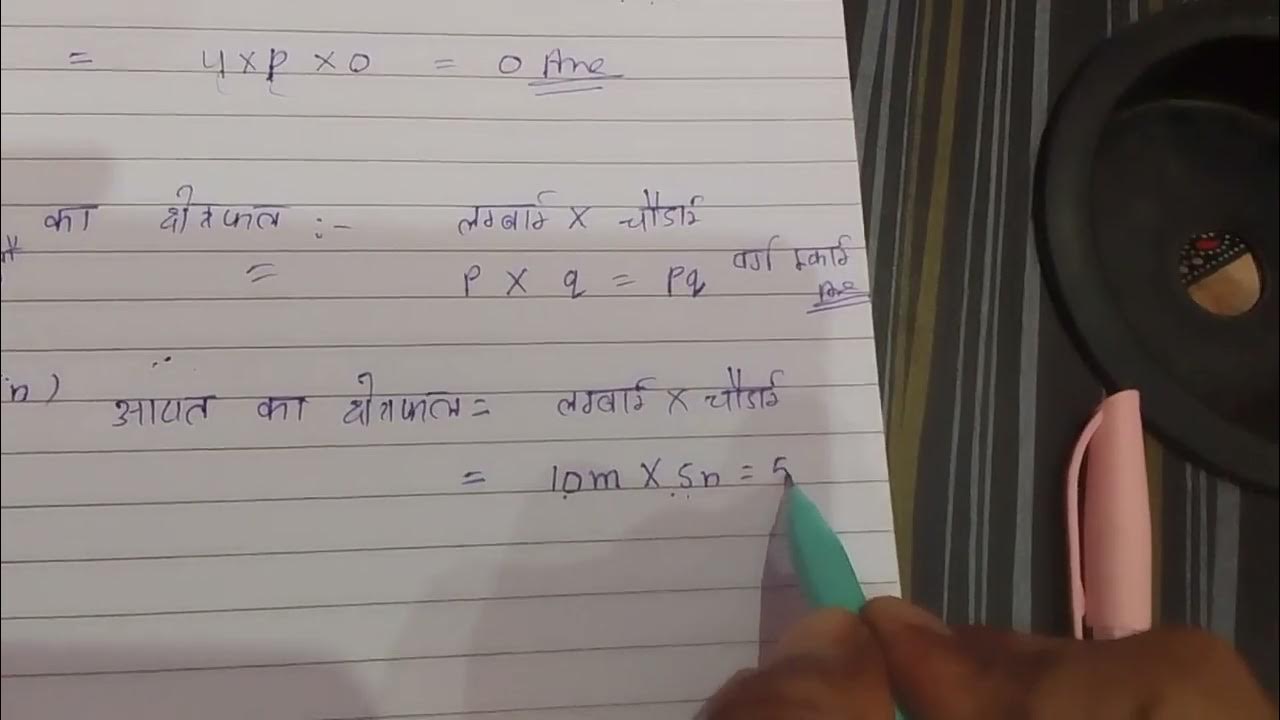 = 4 × p × 0 = 0 Ans
का क्षेत्रफल :- लम्बाई × चौडाई
= p × q = pq वर्ग इकाई Ans
n) आयत का क्षेत्रफल = लम्बाई × चौडाई
= 10m × 5n = 5